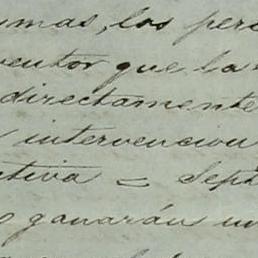 umas, los per
ventor que la
directamente
intervencion
tiva = Sept
ganarán un